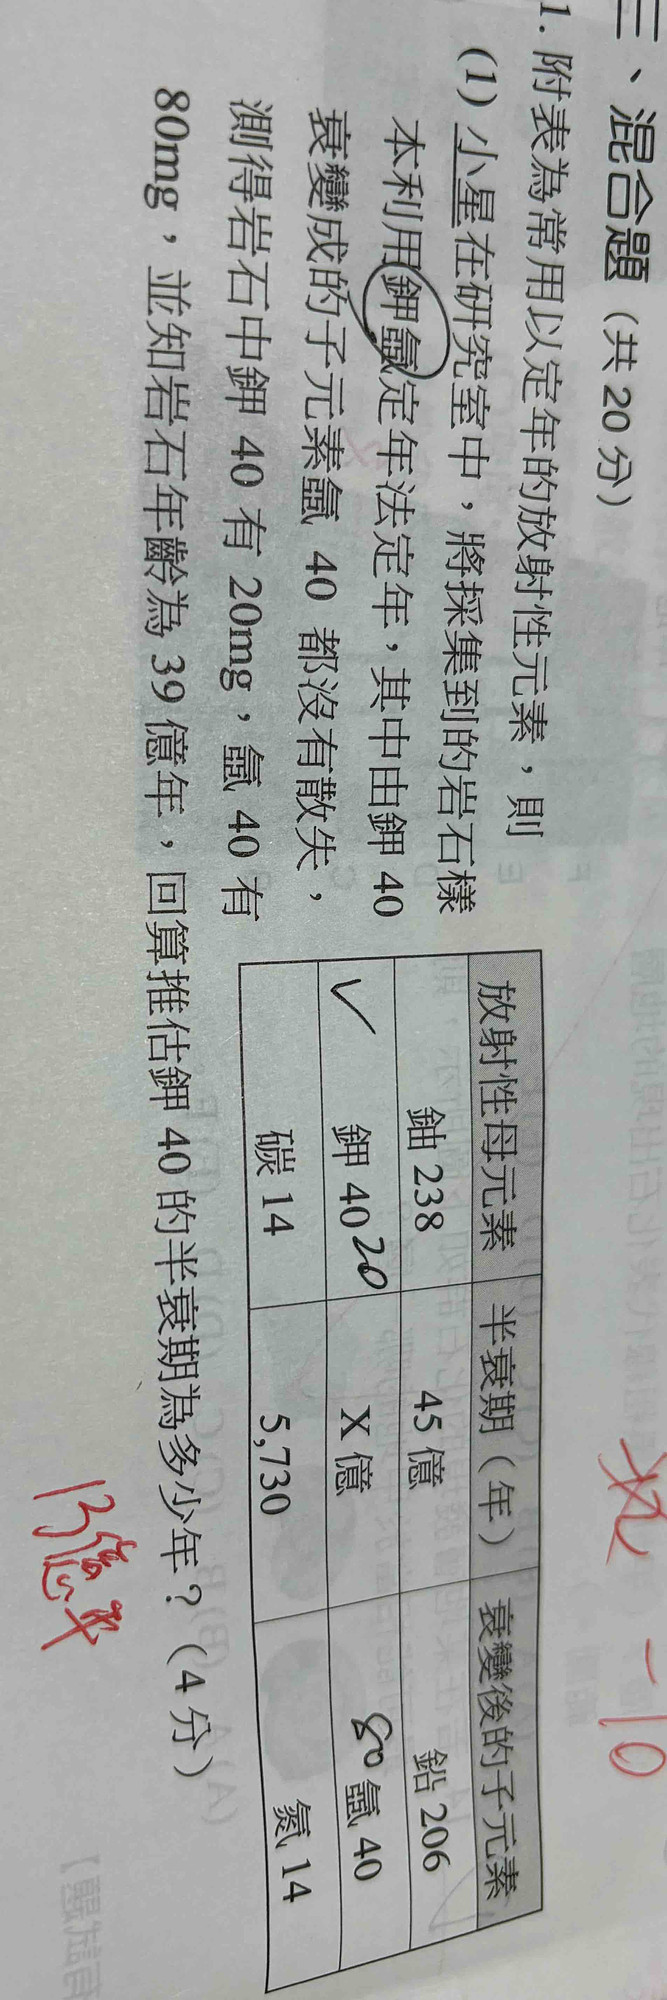 三、混合題（共 20 分）
1. 附表為常用以定年的放射性元素，則
(1) 小星在研究室中，將採集到的岩石樣
本利用鉀氬定年法定年，其中由鉀 40
衰變成的子元素氬 40 都沒有散失，
測得岩石中鉀 40 有 20mg，氬 40 有
80mg，並知岩石年齡為 39 億年，回算推估鉀 40 的半衰期為多少年？（4 分）
放射性母元素 半衰期（年） 衰變後的子元素
鈾 238 45 億 鉛 206
✓ 鉀 40 20 X 億 80 氬 40
碳 14 5,730 氮 14
-10
13億年